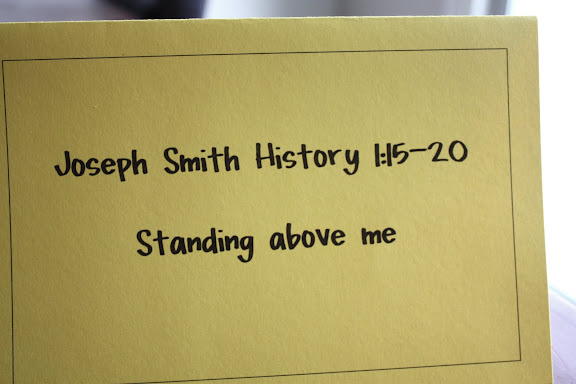 Joseph Smith History 1:15-20
Standing above me